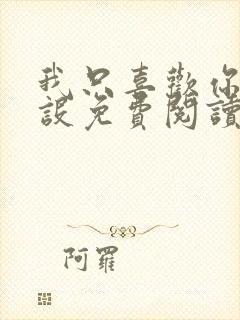 我只喜歡你
設免費閱讀
阿羅